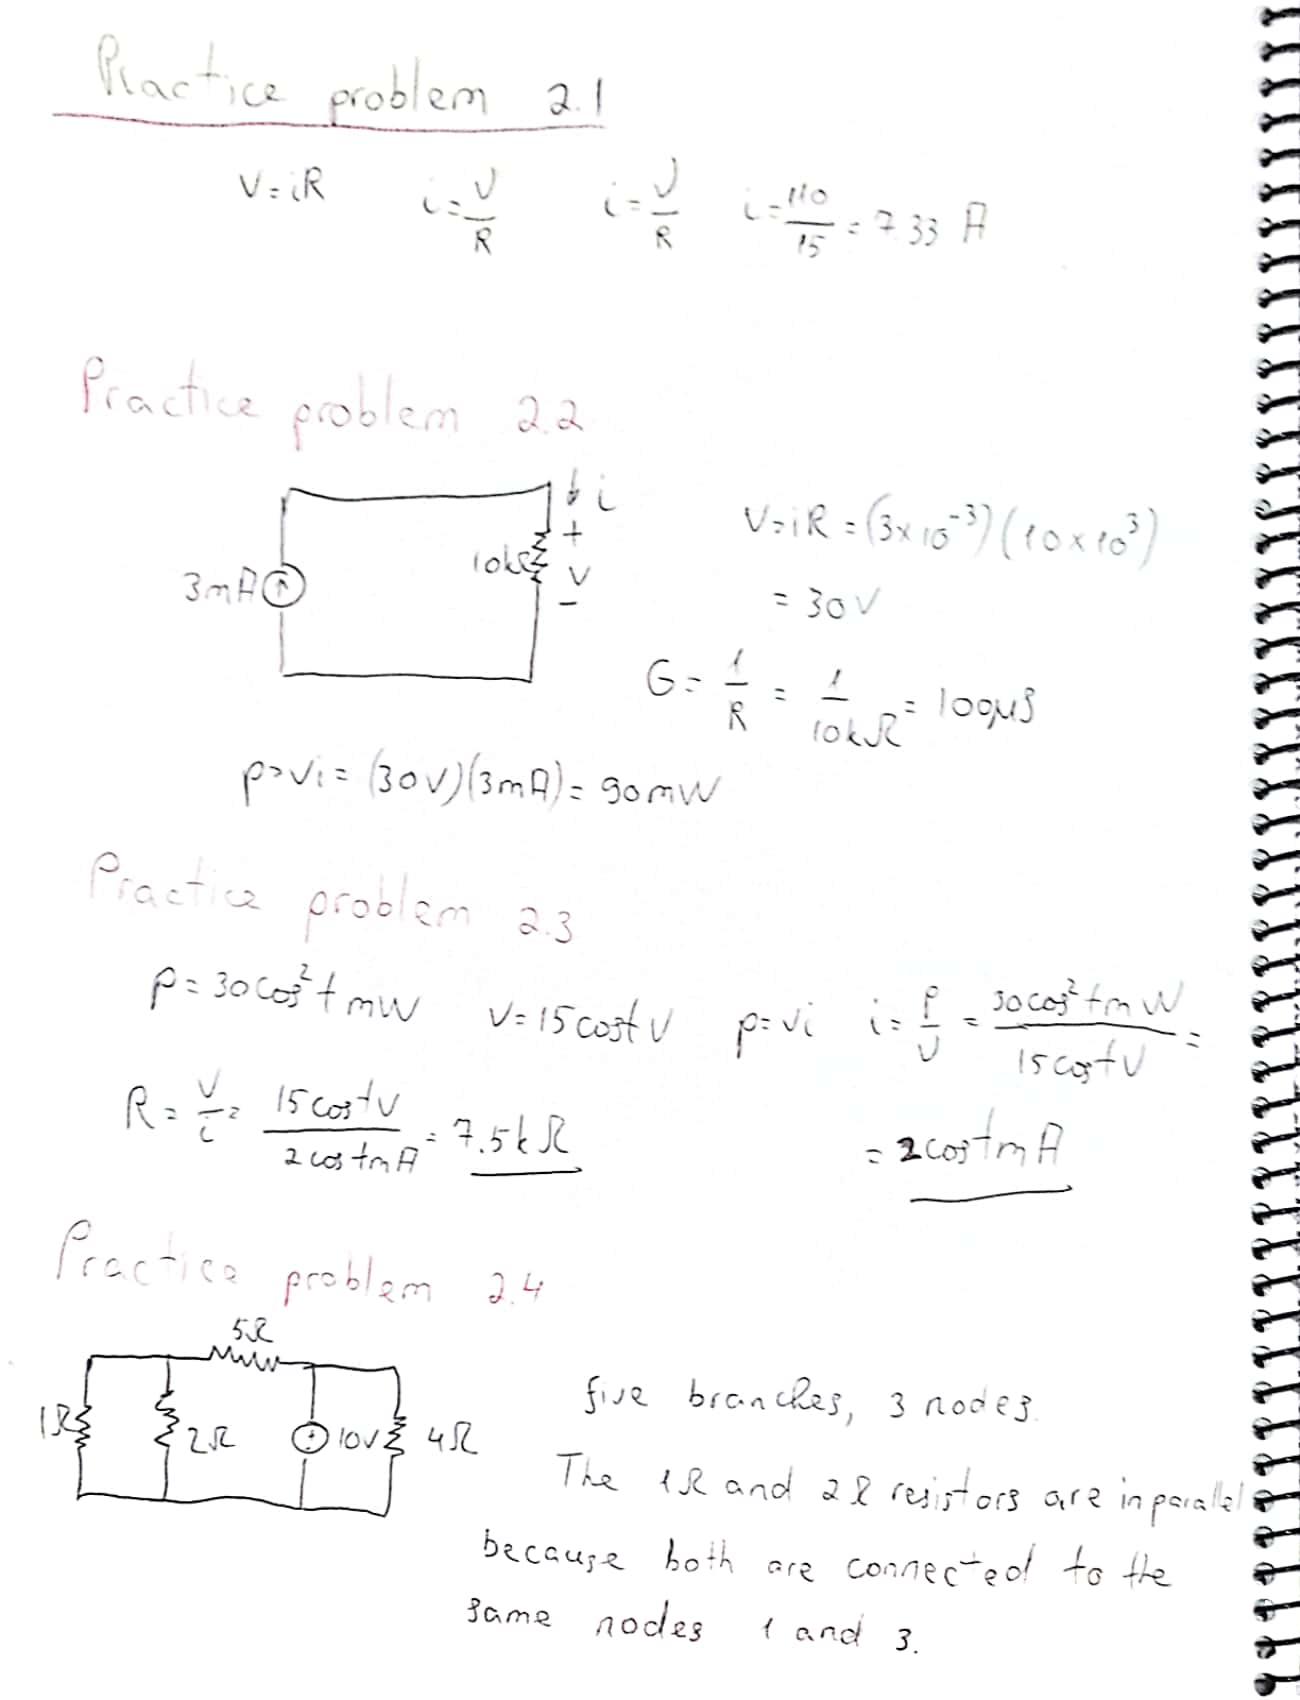 Practice problem 2.1
V=iR i=V/R i=V/R i=110/15=7.33 A
Practice problem 2.2
i
+
10kΩ
V
-
3mA
V=iR=(3×10⁻³)(10×10³)
=30V
G=1/R=1/10kΩ=100μS
p=vi=(30V)(3mA)=90mW
Practice problem 2.3
p=30cos²t mW v=15cost V p=vi i=p/v=30cos²t mW/15cost V=
=2cost mA
R=v/i=15cost V/2cost mA=7.5kΩ
Practice problem 2.4
5Ω
1Ω 2Ω 10V 4Ω
five branches, 3 nodes.
The 1Ω and 2Ω resistors are in parallel
because both are connected to the
same nodes 1 and 3.